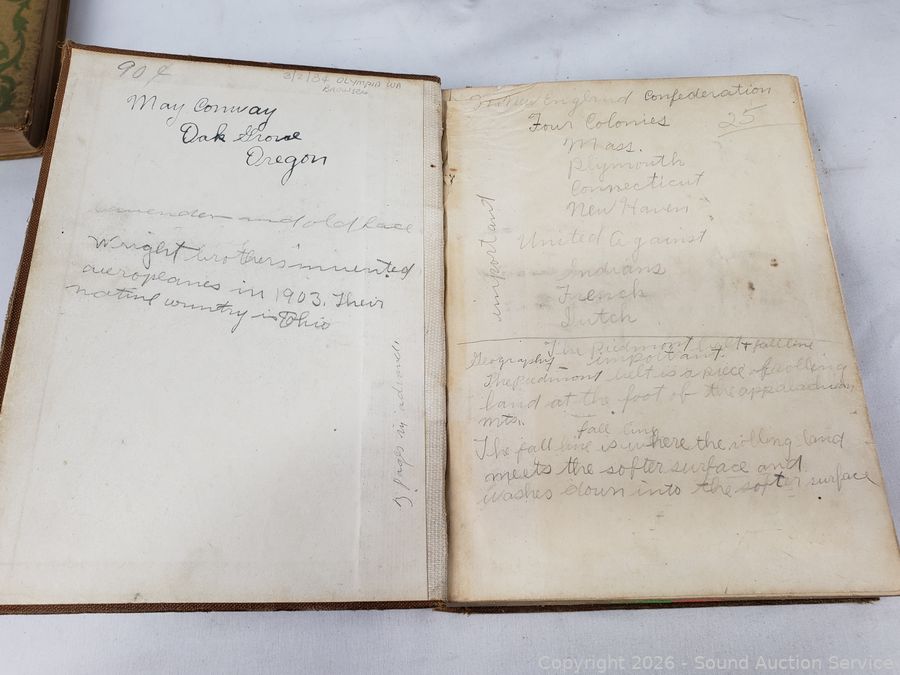 90¢
3/2/84 OLYMPIA WA
BROWSERS
May Conway
Oak Grove
Oregon
Lavender and old lace
Wright brothers invented
aeroplanes in 1903. Their
native country is Ohio
3 pages in advance
The New England Confederation
25
Four Colonies
Mass.
Plymouth
Connecticut
New Haven
important
United Against
Indians
French
Dutch
The Piedmont belt + fall line
Geography important.
The Piedmont belt is a piece of rolling
land at the foot of the
mts.
fall line
The fall line is where the rolling land
meets the softer surface and
washes down into the softer surface
Copyright 2026 - Sound Auction Service